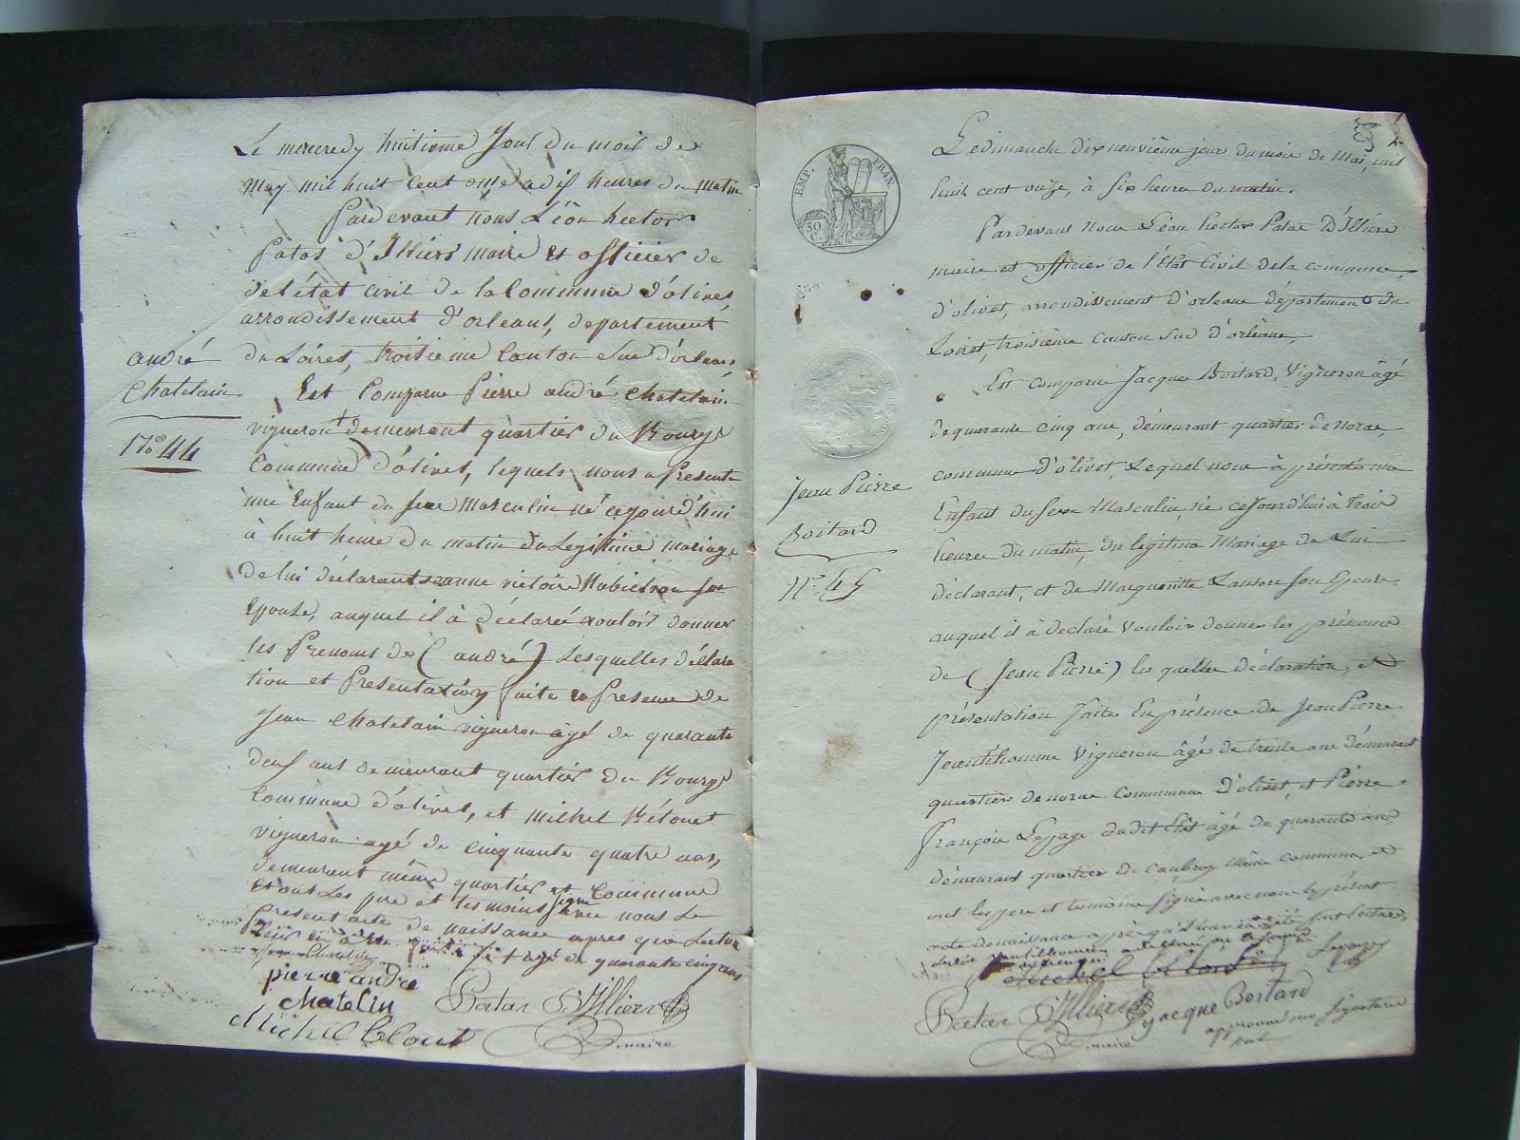 Le mercredy huitieme Jour du mois de
may mil huit cent onze a dix heures du matin
Pardevant nous Léon hector
Patas d'Illiers maire et officier de
de l'état civil de la Commune d'olivet,
arrondissement d'orleans, departement
du Loiret, troisieme Canton Sud d'orleans,
andré
Chatelain
N.o 44
Est Comparu Pierre andré Chatelain
vigneron demeurant quartier du Bourg
Commune d'olivet, lequel nous a présenté
une Enfant du sexe Masculin né cejourd'hui
à huit heure du matin du Legitime mariage
de lui déclarant jeanne victoire
Epouse, auquel il à déclaré vouloir donner
les Prenoms de (andré) Lesquelles déclara
tion et Presentation faite en Presence de
Jean Chatelain vigneron agé de quarante
deux ans demeurant quartier du Bourg
Commune d'olivet, et Michel
vigneron agé de cinquante quatre ans,
demeurant même quartier et Commune
Et ont Les pere et temoins signé avec nous Le
Present acte de naissance apres que Lecture
agé de quarante cinq ans
pierre andré
chatelin
Michel
Patas D'Illiers
maire
EMP. FRAN.
50
C.
Le dimanche dix neuvième jour du mois de Mai, mil
huit cent onze, à six heures du matin.
Pardevant Nous Léon hector Patas D'Illiers
maire et officier de l'état Civil de la commune
d'olivet, arrondissement d'orleans département du
Loiret, troisième canton sud d'orléans,
Jean Pierre
Boitard
N.o 45
Est comparu Jacque Boitard, Vigneron âgé
de quarante cinq ans, demeurant quartier de norae,
commune d'olivet, Lequel nous à présenté un
Enfant du sexe Masculin, né cejourd'hui à trois
heures du matin, du legitime Mariage de Lui
déclarant, et de Margueritte Lanson son Epouse
auquel il à déclaré Vouloir donner les prénoms
de (Jean Pierre) les quelles déclaration, et
présentation faite En présence de Jean Pierre
Jeantihomme Vigneron âgé de trente ans démeurant
quartier de norae Commune D'olivet, et Pierre
françois Lepage dudit Etat âgé de quarante ans
démeurant quartier de même commune, et
ont les pere et temoins signé avec nous le présent
acte de naissance après qu'il leur en à été fait lecture,
Lepage
Patas D'Illiers
maire
jacque Boitard
approuvé une signature
nul